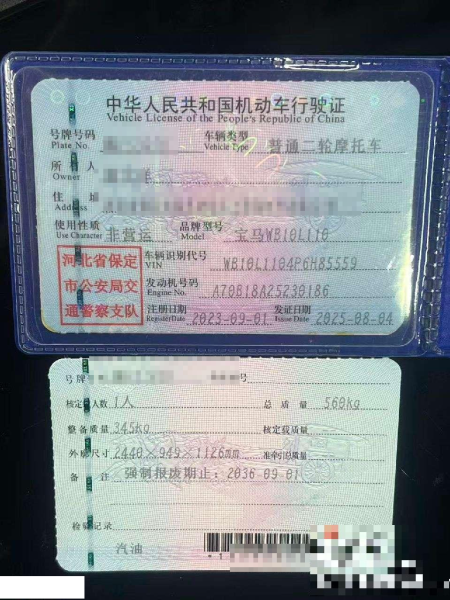 中华人民共和国机动车行驶证
Vehicle License of the People's Republic of China
号牌号码
Plate No.
车辆类型 普通二轮摩托车
Vehicle Type
所有人
Owner
住址
Address
使用性质 非营运 品牌型号 宝马WB10L110
Use Character Model
河北省保定
市公安局交
通警察支队
车辆识别代号 WB10L1104P6H85559
VIN
发动机号码 A70B18A25230186
Engine No.
注册日期 2023-09-01 发证日期 2025-08-04
Register Date Issue Date
号牌 号
核定人数 1人 总质量 560kg
整备质量 345kg 核定载质量
外廓尺寸 2440×949×1126mm 准牵引总质量
备注 强制报废期止：2036-09-01
检验记录
汽油